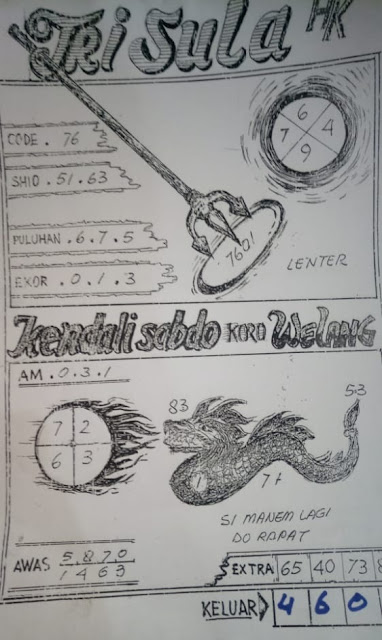 Tri Sula HK
6
7 4
9
CODE . 76
SHIO . 51 . 63
PULUHAN . 6 . 7 . 5
EKOR . 0 . 1 . 3
7601
LENTER
Kendali sabdo KORO WELANG
AM . 0 . 3 . 1
83
53
7 2
6 3
1
7+
SI MANEM LAGI
DO RAPAT
AWAS 5 8 7 0
1 4 6 9
EXTRA 65 40 73 8
KELUAR 4 6 0